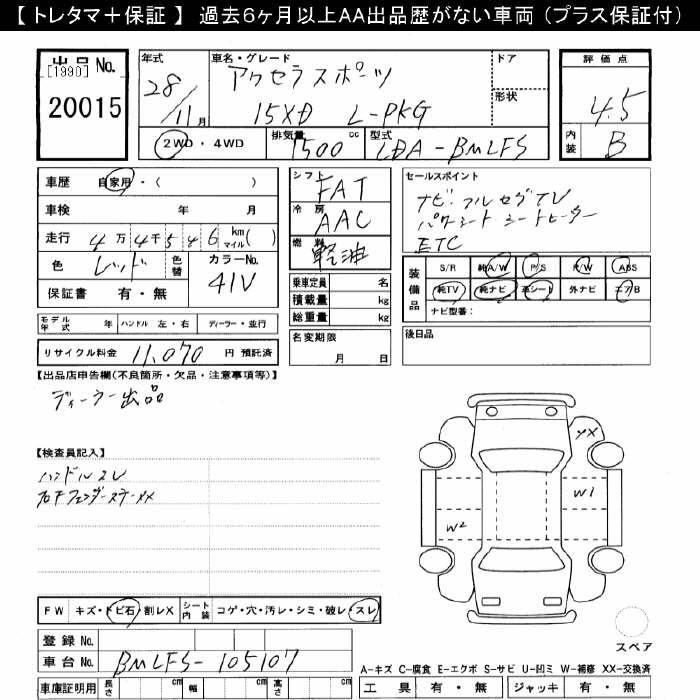 【 トレタマ＋保証 】 過去6ヶ月以上AA出品歴がない車両（プラス保証付）
出品 No. [1990]
20015
年式 28/11月
車名・グレード アクセラスポーツ
15XD L-PKG
ドア
形状
評価点 4.5
内装 B
2WD・4WD
排気量 1500 cc
型式 LDA-BMLFS
車歴 自家用・( )
車検 年 月
走行 4万4千546 km マイル( )
色 レッド
色替
カラーNo. 41V
保証書 有・無
シフト FAT
冷房 AAC
燃料 軽油
乗車定員 名
積載量 kg
総重量 kg
セールスポイント
ナビ・フルセグTV
パワーシート シートヒーター
ETC
装備品
S/R 純A/W P/S P/W ABS
純TV 純ナビ 革シート 外ナビ エアB
ナビ型番：
モデル年式 年 ハンドル 左・右 ディーラー・並行
リサイクル料金 11,070 円 預託済
名変期限 月 日
後日品
【出品店申告欄(不良箇所・欠品・注意事項等)】
ディーラー出品
【検査員記入】
ハンドルスレ
右Fフェンダーステー
YX
W1
W2
FW キズ・トビ石・割レX
シート内装 コゲ・穴・汚レ・シミ・破レ・スレ
スペア
登録 No.
車台 No. BMLFS-105107
A-キズ C-腐食 E-エクボ S-サビ U-凹ミ W-補修 XX-交換済
車庫証明用 長さ cm 幅 cm 高さ cm
工具 有・無 ジャッキ 有・無